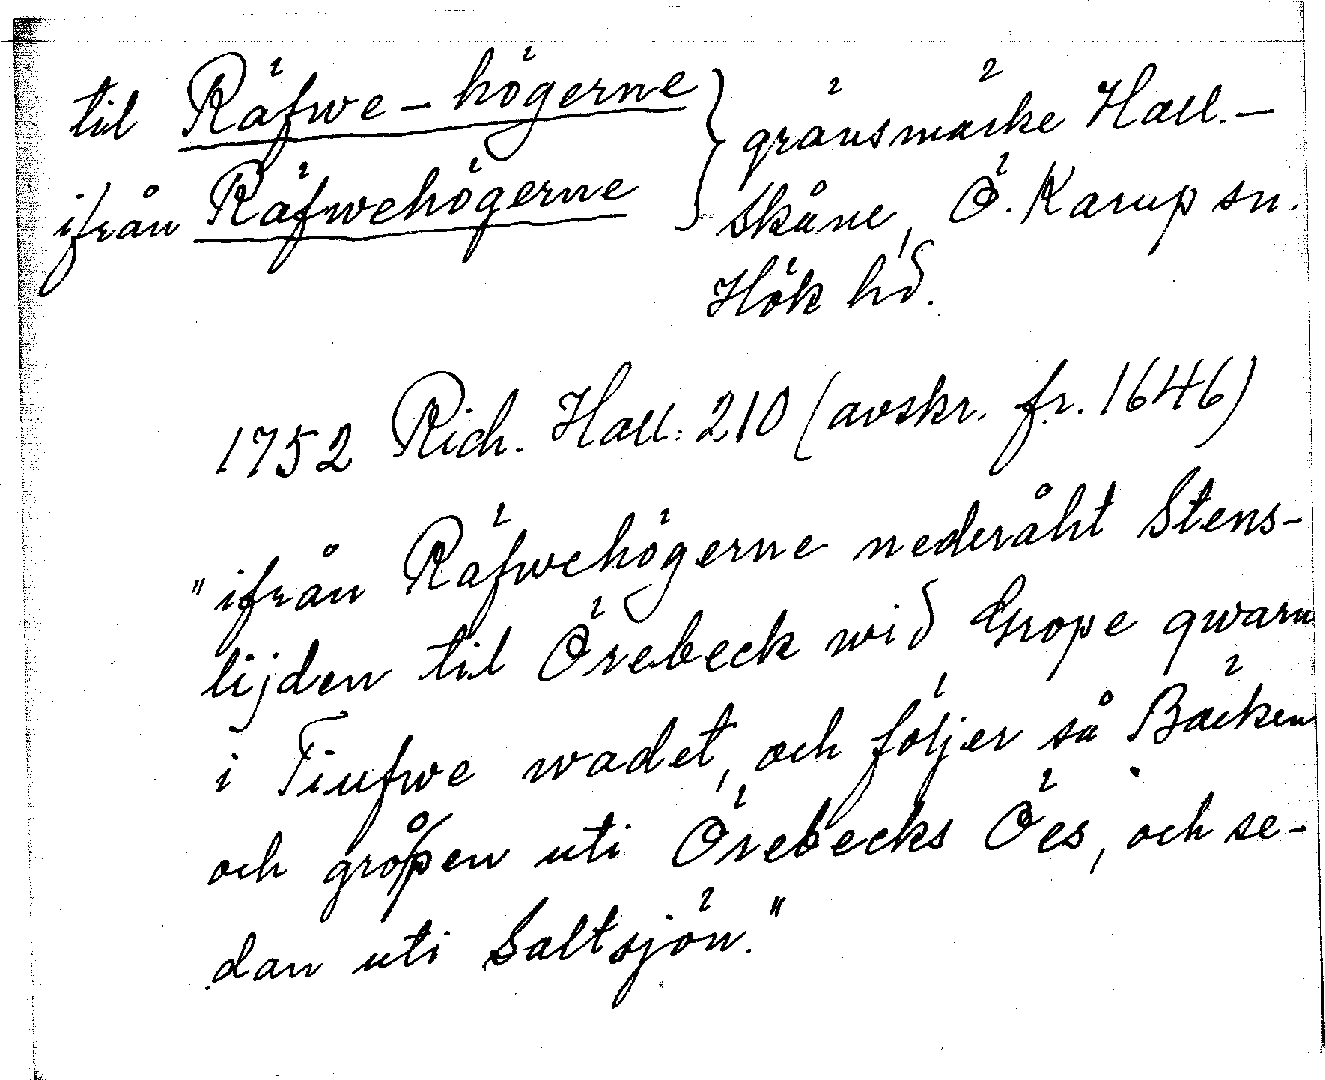 til Räfwe-högerne } gränsmärke Hall.-
ifrån Räfwehögerne } Skåne, Ö. Karup sn.
Hök hd.
1752 Rich. Hall: 210 (avskr. fr. 1646)
"ifrån Räfwehögerne nederåht Stens-
lijden til Örebeck wid Grope qwarn
i Tiufwe wadet, och följer så Bäcken
och gropen uti Örebecks Öes, och se-
dan uti Saltsjön."